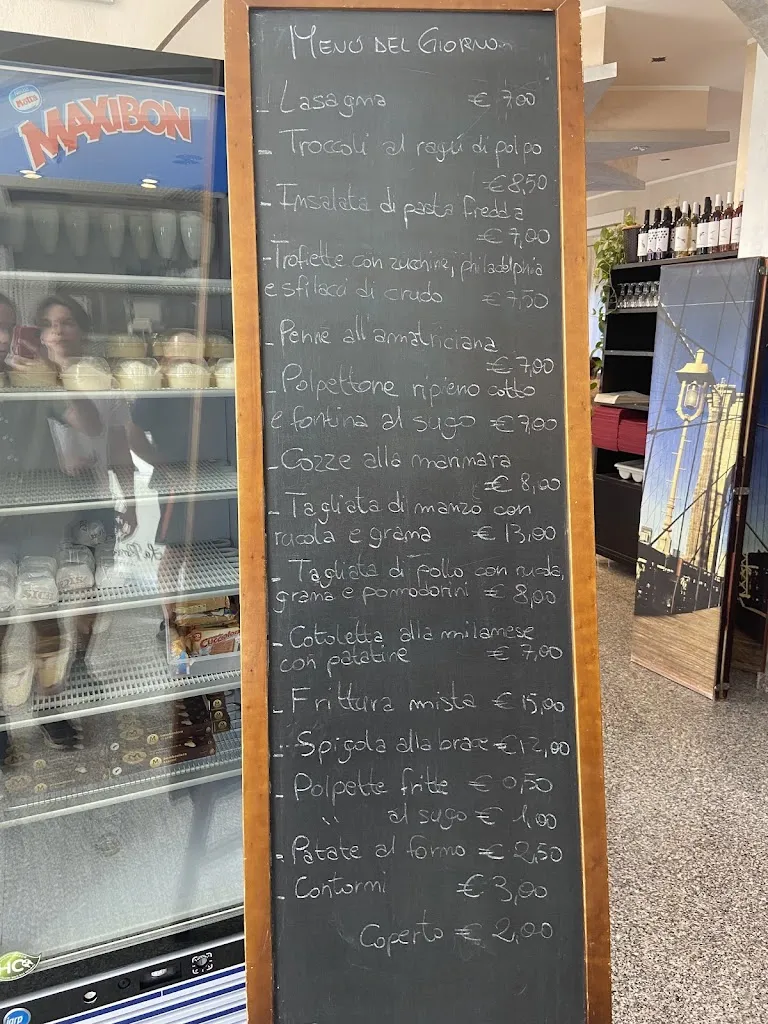 MAXIBON
MENÚ DEL GIORNO
- Lasagna € 7,00
- Troccoli al ragú di polpo
€ 8,50
- Insalata di pasta fredda
€ 7,00
- Trofiette con zucchine, philadelphia
e sfilacci di crudo € 7,50
- Penne all'amatriciana
€ 7,00
- Polpettone ripieno cotto
e fontina al sugo € 7,00
- Cozze alla marinara
€ 8,00
- Tagliata di manzo con
rucola e grana € 13,00
- Tagliata di pollo con rucola,
grana e pomodorini € 8,00
- Cotoletta alla milanese
con patatine € 7,00
- Frittura mista € 15,00
- Spigola alla brace € 12,00
- Polpette fritte € 0,50
" al sugo € 1,00
- Patate al forno € 2,50
- Contorni € 3,00
Coperto € 2,00
Cucciolone
HC